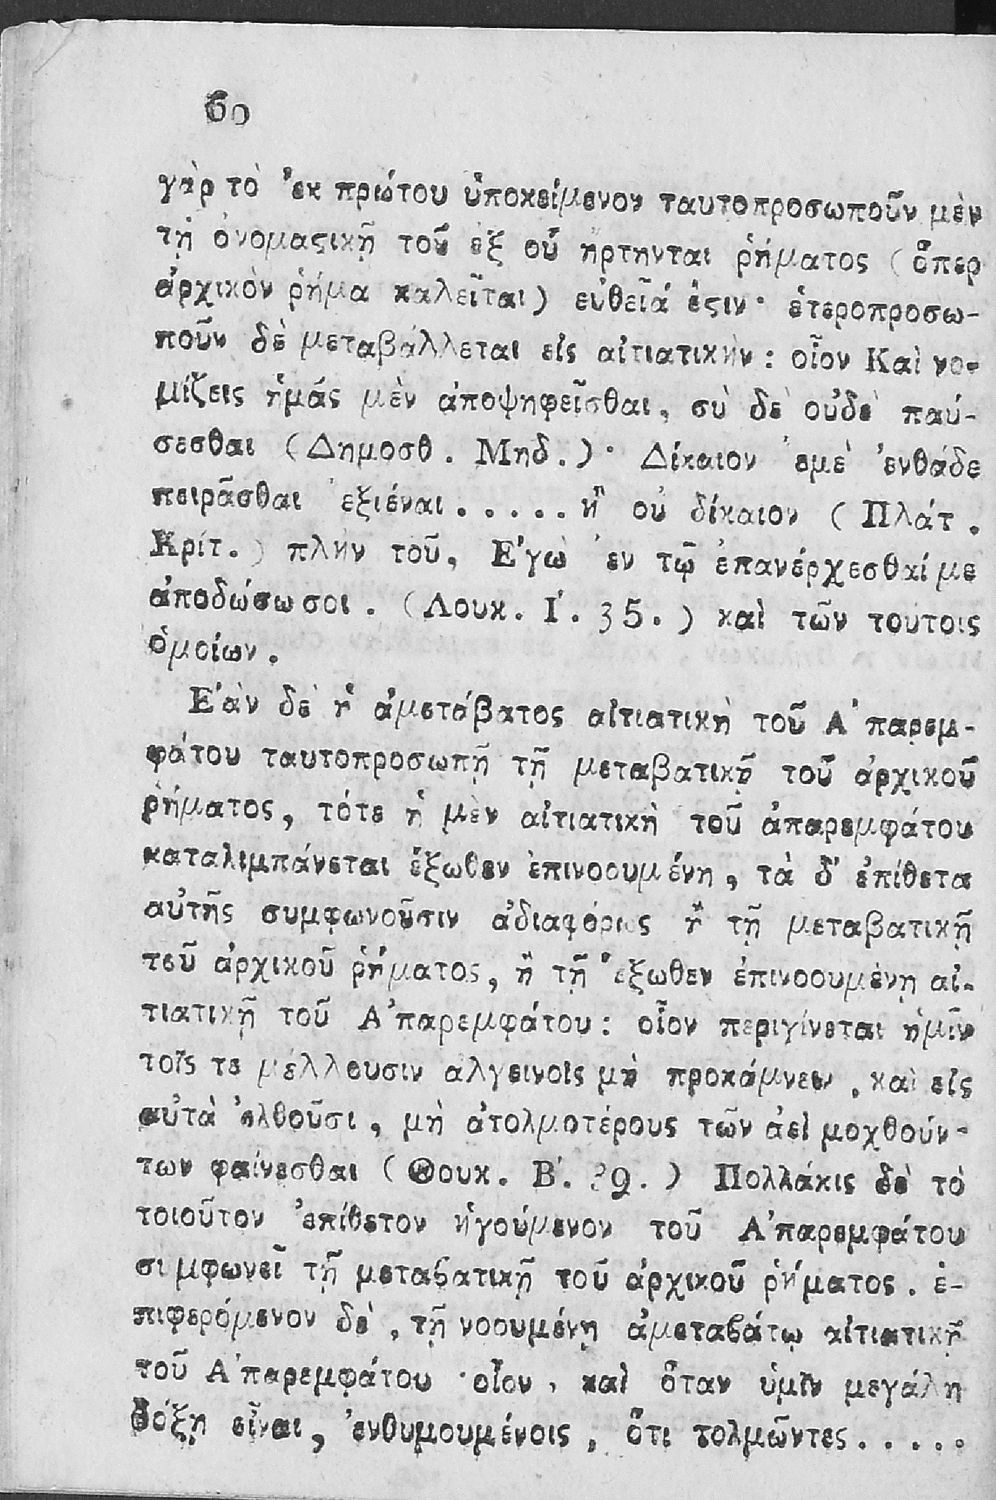 60
γὰρ τὸ ἐκ πρώτου ὑποκείμενον ταυτοπροσωποῦν μὲν
τῇ ὀνομαϛικῇ τοῦ ἐξ οὗ ἤρτηνται ῥήματος (ὅπερ
ἀρχικὸν ῥήμα καλεῖται) εὐθεῖά ἐϛιν· ἑτεροπροσω-
ποῦν δὲ μεταβάλλεται εἰς αἰτιατικὴν: οἷον Καὶ νο-
μίζεις ἡμάς μὲν ἀποψηφεῖσθαι, σὺ δὲ οὐδὲ παύ-
σεσθαι (Δημοσθ. Μηδ.)· Δίκαιον ἐμὲ ἐνθάδε
πειρᾶσθαι ἐξιέναι..... ἢ οὐ δίκαιον (Πλάτ.
Κρίτ.) πλὴν τοῦ, Ἐγὼ ἐν τῷ ἐπανέρχεσθαί με
ἀποδώσω σοι. (Λουκ. Ι΄. 35.) καὶ τῶν τουτοις
ὁμοίων.
Ἐὰν δὲ ἡ ἀμετάβατος αἰτιατικὴ τοῦ Ἀπαρεμ-
φάτου ταυτοπροσωπῇ τῇ μεταβατικῇ τοῦ ἀρχικοῦ
ῥήματος, τότε ἡ μὲν αἰτιατικὴ τοῦ ἀπαρεμφάτου
καταλιμπάνεται ἔξωθεν ἐπινοουμένη, τὰ δ' ἐπίθετα
αὐτῆς συμφωνοῦσιν ἀδιαφόρως ἢ τῇ μεταβατικῇ
τοῦ ἀρχικοῦ ῥήματος, ἢ τῇ ἔξωθεν ἐπινοουμένη αἰ-
τιατικῇ τοῦ Ἀπαρεμφάτου: οἷον περιγίνεται ἡμῖν
τοῖς τε μέλλουσιν αλγεινοῖς μὴ προκάμνειν, καὶ εἰς
αὐτὰ ἐλθοῦσι, μὴ ἀτολμοτέρους τῶν ἀεὶ μοχθούν-
των φαίνεσθαι (Θουκ. Β΄. 39.) Πολλάκις δὲ τὸ
τοιοῦτον ἐπίθετον ἡγούμενον τοῦ Ἀπαρεμφάτου
συμφωνεῖ τῇ μεταβατικῇ τοῦ ἀρχικοῦ ῥήματος. ἐ-
πιφερόμενον δὲ, τῇ νοουμένῃ ἀμεταβάτῳ αἰτιατικῇ
τοῦ Ἀπαρεμφάτου· οἷον, καὶ ὅταν ὑμῖν μεγάλη
δόξῃ εἶναι, ἐνθυμουμένοις, ὅτι τολμῶντες.....